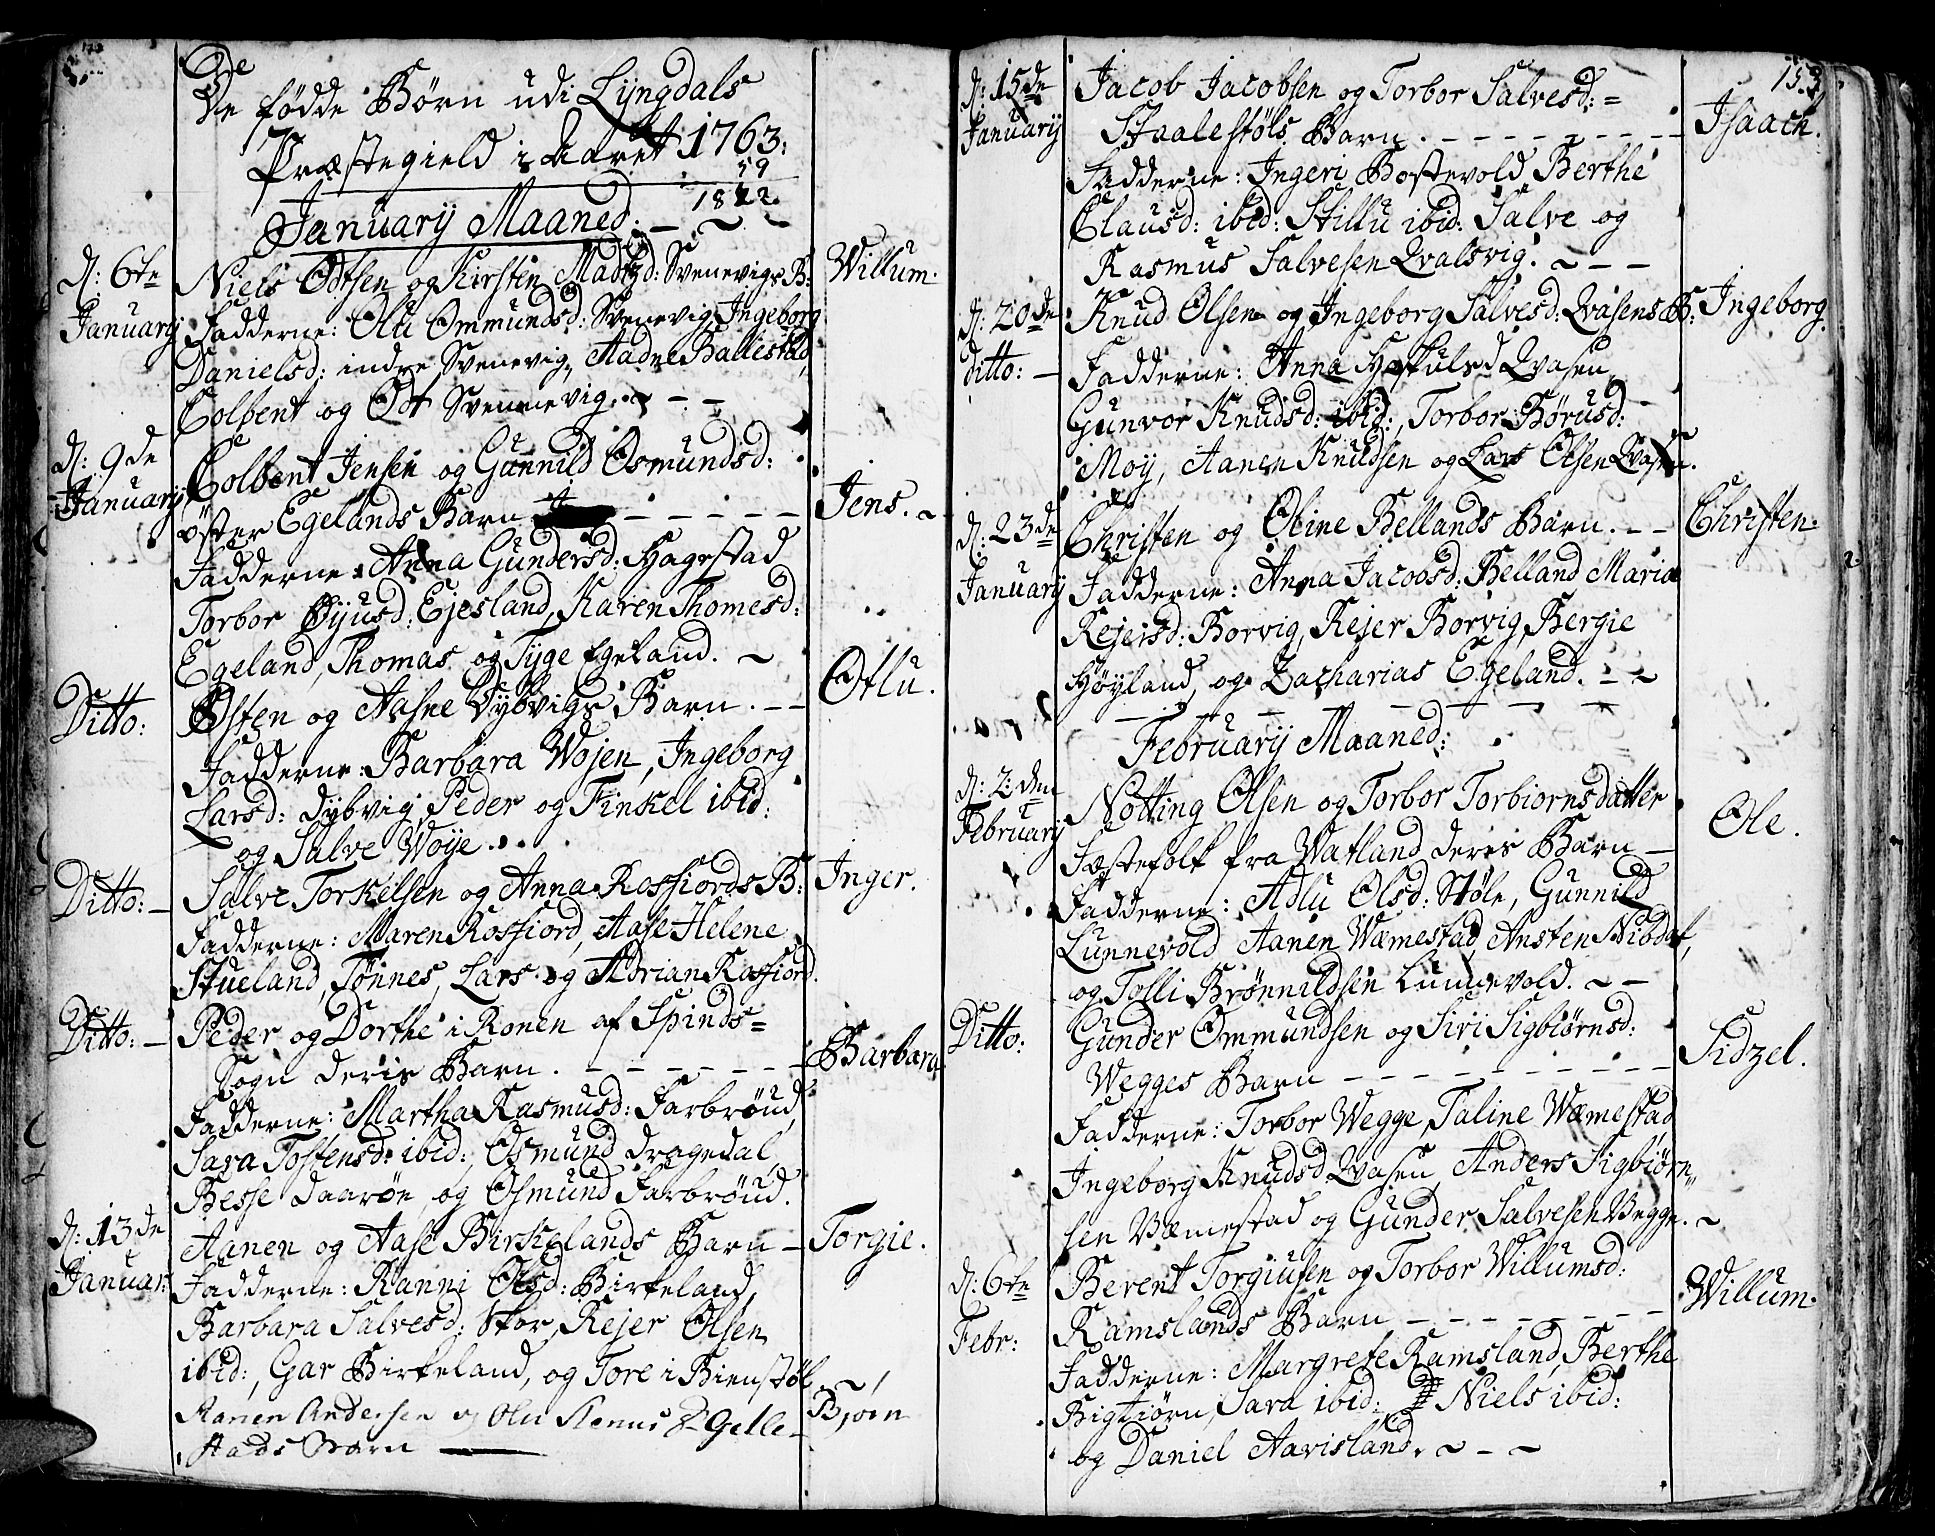 De fødde Børn udi Lyngdals
Præstegield i Aaret 1763:
59
1822
January Maaned.
D: 6te
January
Niels Odtsen og Kirsten Madtzd: Svenevigs B:
Willum.
Fadderne: Olu Ommundsd: Svenevig, Ingeborg
Danielsd: indre Svenevig, Aadne Ballestad,
Colbent og Odt Svennevig.
D: 9de
January
Colbent Jensen og Gunnild Osmundsd:
öster Egelands Barn
Jens.
Fadderne: Anna Gundersd: Hagestad
Torbor Øyusd: Ejesland, Karen Thomesd:
Egeland, Thomas og Tyge Egeland.
Ditto:
Osten og Aasne Dybvigs Barn.
Otlu.
Fadderne: Barbara Wojen, Ingeborg
Larsd: Dybvig, Peder og Finkel ibid:
og Salve Woye.
Ditto:
Salve Torkelsen og Anna Rosfiords B:
Inger.
Fadderne: Maren Rosfiord, Aase Helene
Stueland, Tønnes, Lars og Adrian Rosfiord.
Ditto:
Peder og Dorthe i Ronen af Spinds=
Sogn deris Barn.
Barbara
Fadderne: Martha Rasmusd: Farbröud,
Sara Tostensd: ibid:, Osmund Dragedal,
Besse Daarøn og Osmund Farbröud.
D: 13de
Januar:
Aanen og Aase Birkelands Barn
Torgie.
Fadderne: Ranni Olsd: Birkeland,
Barbara Salvesd: Skor, Rejer Olsen
ibid:, Gar Birkeland, og Tore i Bienstøl
Aanen Andersen og Olu Aanusd: Gelle-
Bjorn
stads Barn
153.
D: 15de
January
Jacob Jacobsen og Torbor Salvesd:=
Staalestøls Barn.
Isaach.
Fadderne: Ingeri Bostevold Berthe
Clausd: ibid: Stillu ibid: Salve og
Rasmus Salvesen Qvalsvig.
D: 20de
ditto:
Knud Olsen og Ingeborg Salvesd: Qvasens B:
Ingeborg.
Fadderne: Anna Høskulsd Qvasen,
Gunvor Knudsd: ibid:, Torbor Børusd:
Moy, Aanen Knudsen og Lars Olsen Qvasen.
D: 23de
January
Christen og Oline Bellands Barn.
Christen.
Fadderne: Anna Jacobsd: Belland Maria
Rejersd: Borvig, Rejer Borvig, Bergie
Høyland, og Zacharias Egeland.
February Maaned:
D: 2:den
February
Notting Olsen og Torbor Torbiornsdatter
Ole.
Fæstefolk fra Watland deris Barn
Fadderne: Adlu Olsd: Støle, Gunnild
Lunnevold Aanen Wæmestad, Ansten Nibdal,
og Tolli Brönnildsen Lunnevold.
Ditto:
Gunder Ommundsen og Siri Sigbiørnsd:
Wegges Barn
Sidzel.
Fadderne: Torbor Wegge, Taline Wæmestad
Ingeborg Knudsd Qvasen, Anders Sigbiørn,,
sen Væmestad og Gunder Salvesen Vegge.
D: 6te
Febr:
Berent Torgiusen og Torbor Willumsd:
Ramslands Barn
Willum.
Fadderne: Margrete Ramsland, Berthe
Bigtiörn, Sara ibid: Niels ibid:
og Daniel Aavisland.